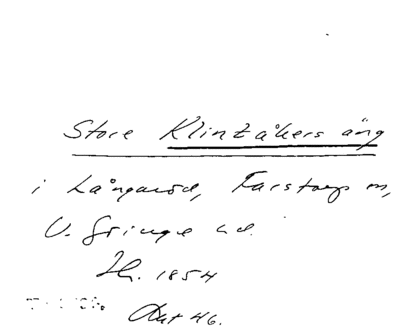 Store Klintåkers äng
i Långaröd, Farstorps sn,
V. Göinge hd.
1854
Akt 46.